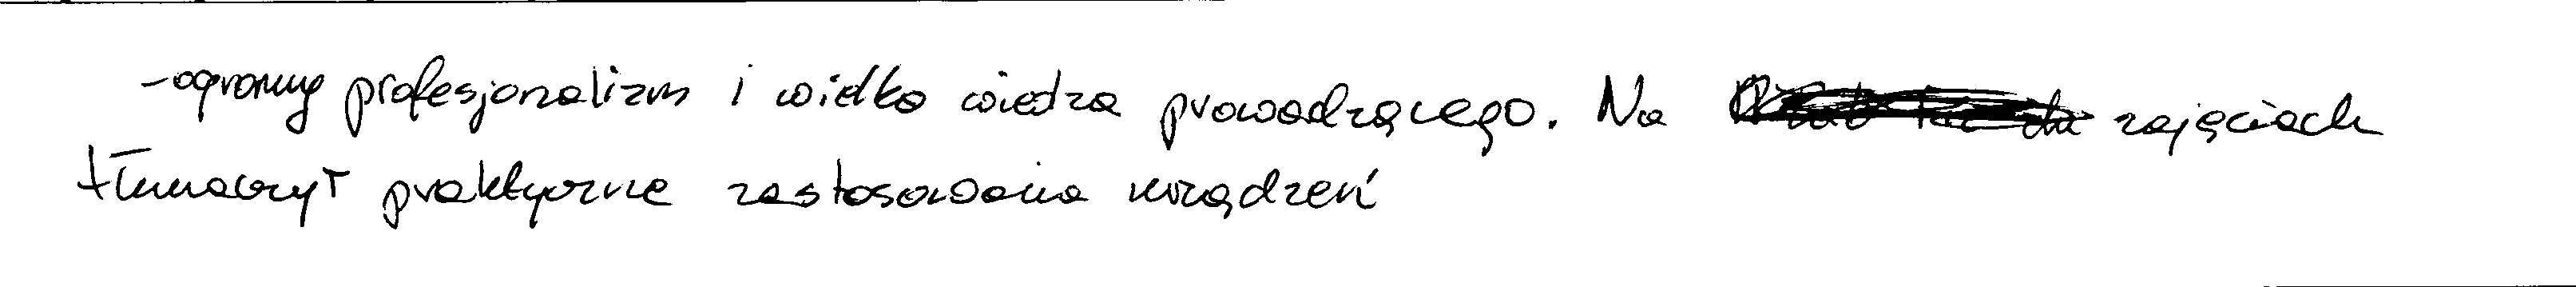 - ogromny profesjonalizm i wielka wiedza prowadzącego. Na zajęciach
tłumaczył praktyczne zastosowania urządzeń